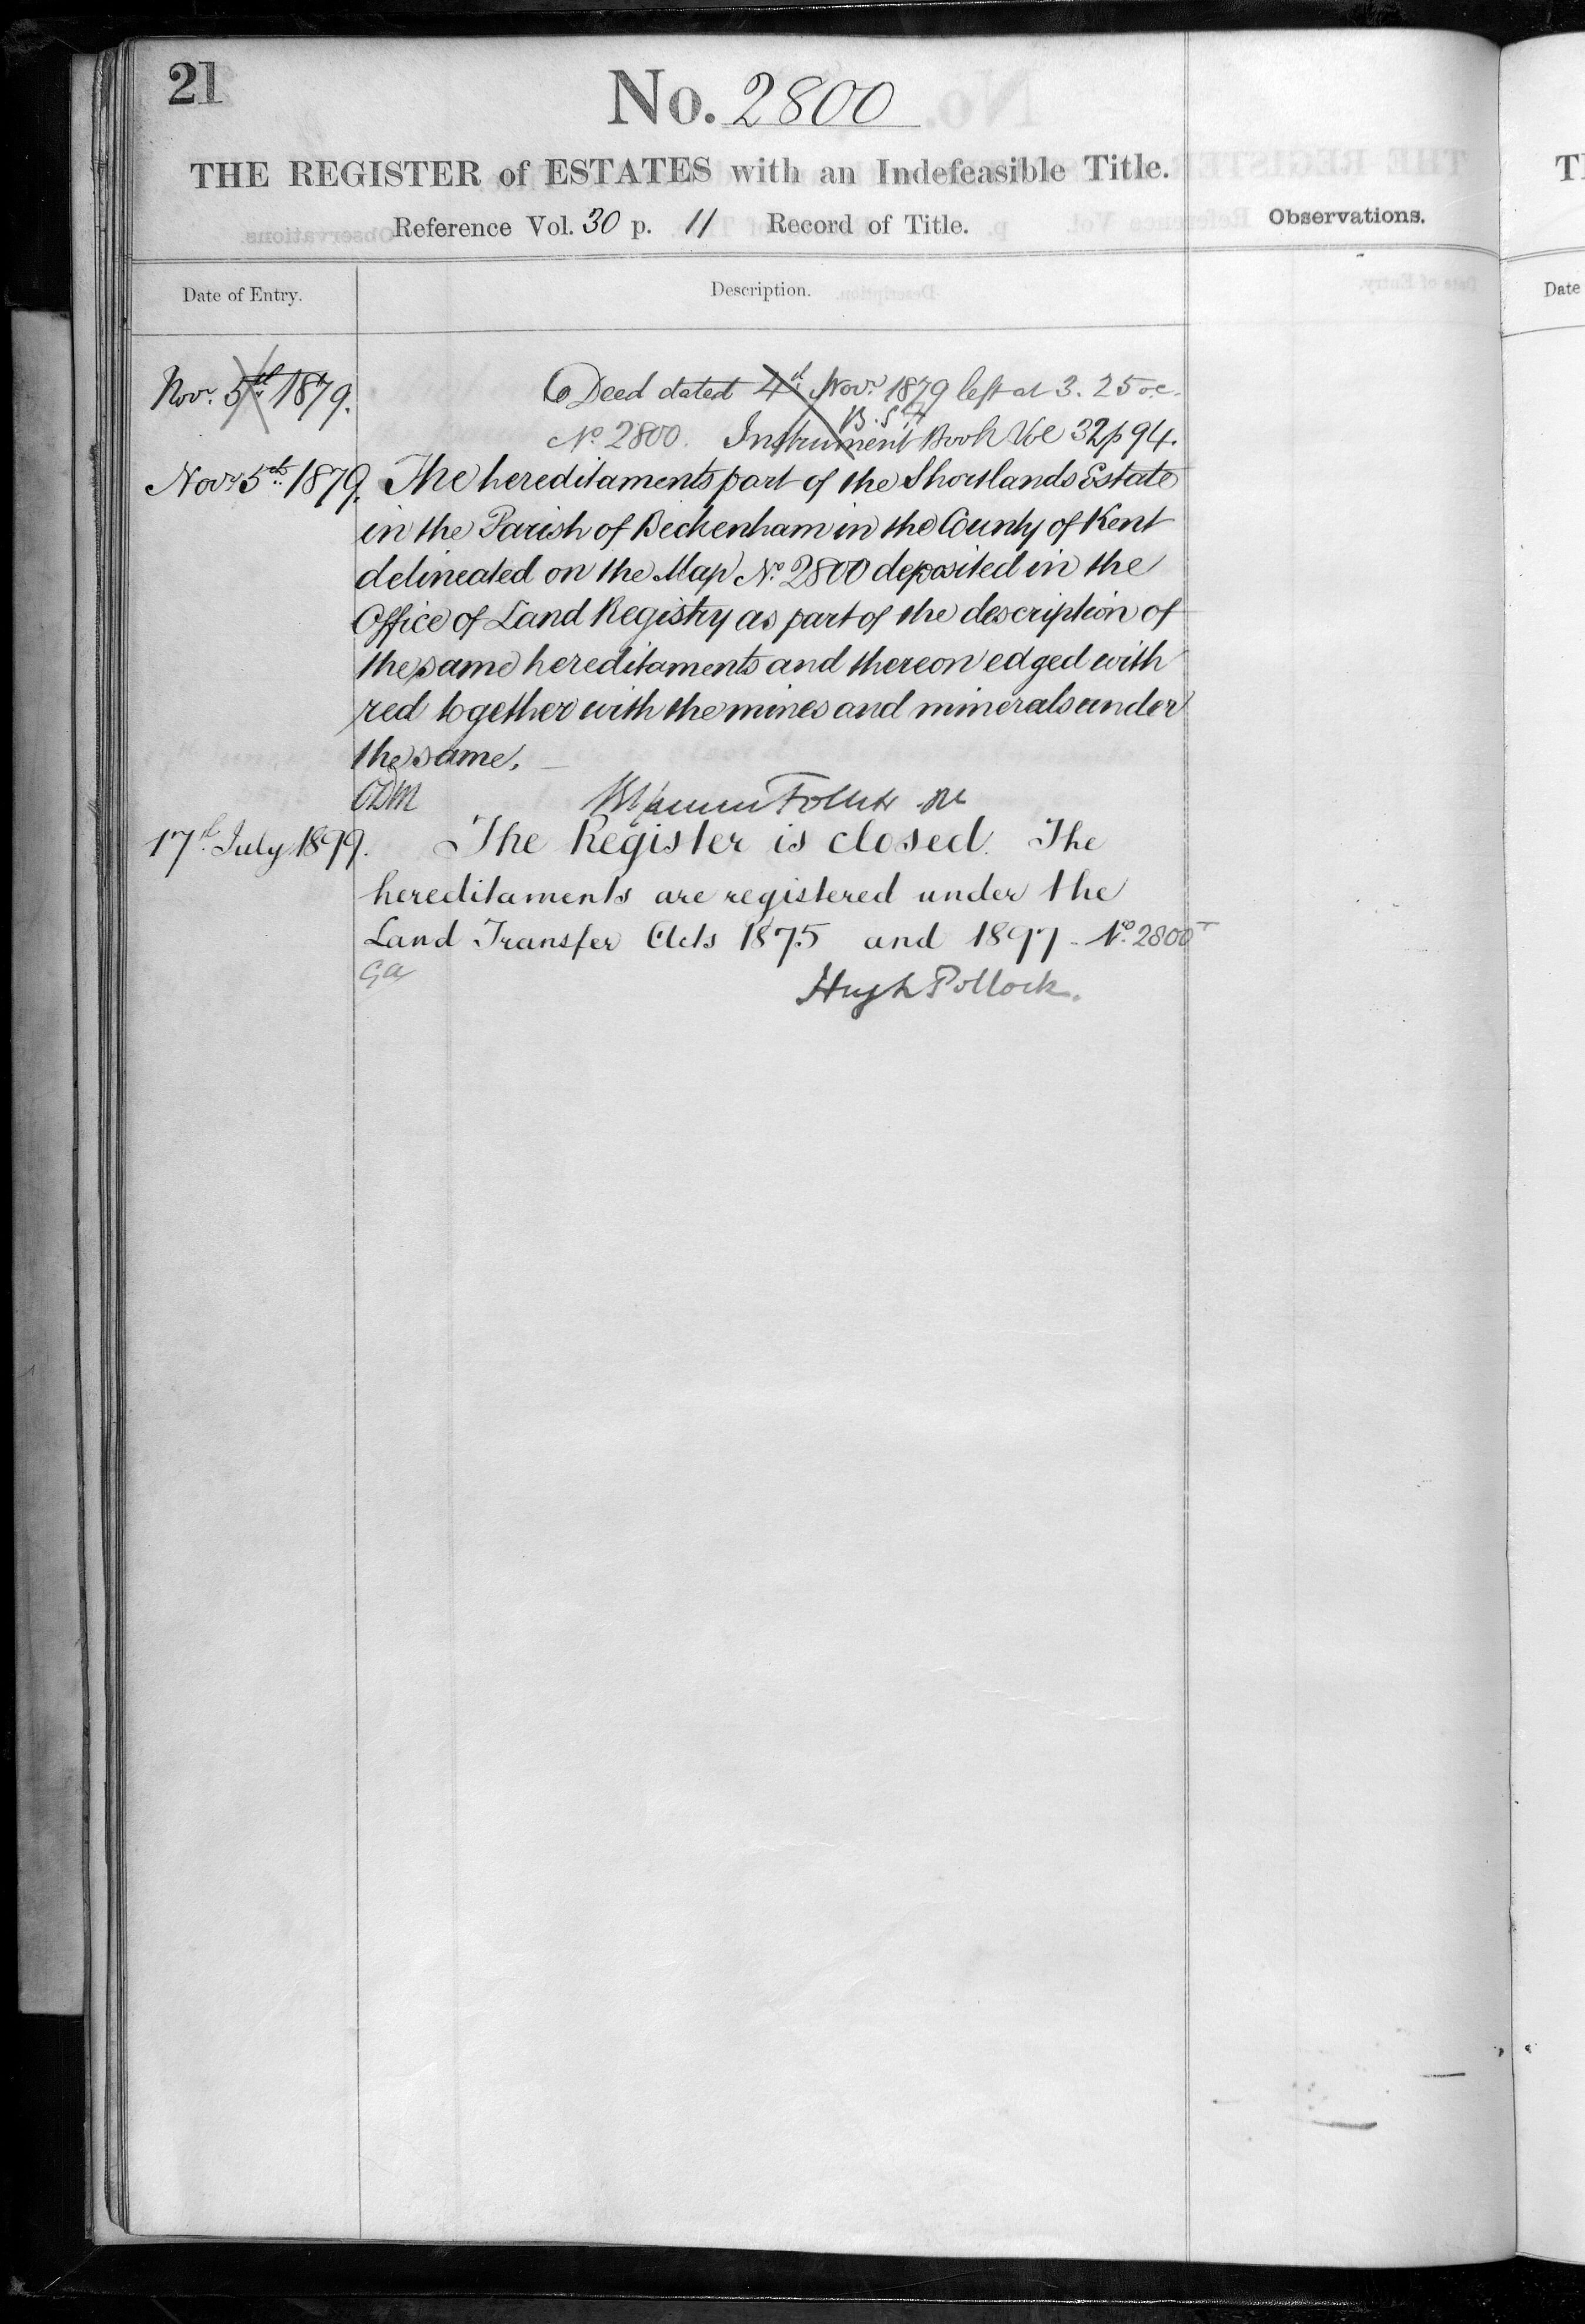 21
No. 2800
THE REGISTER of ESTATES with an Indefeasible Title.
Reference Vol. 30 p. 11 Record of Title.
Observations.
Date of Entry.
Description.
Novr. 5th 1879.
Deed dated 4th Novr. 1879 left at 3.25 oc.
B.S.
No. 2800. Instrument Book Vol 32 p 94.
Novr. 5th 1879. The hereditaments part of the Shortlands Estate
in the Parish of Beckenham in the County of Kent
delineated on the Map No. 2800 deposited in the
Office of Land Registry as part of the description of
the same hereditaments and thereon edged with
red together with the mines and minerals under
the same.
Follett
17th July 1899. The Register is closed. The
hereditaments are registered under the
Land Transfer Acts 1875 and 1897 - No. 2800
Ga
Hugh Pollock.
Date